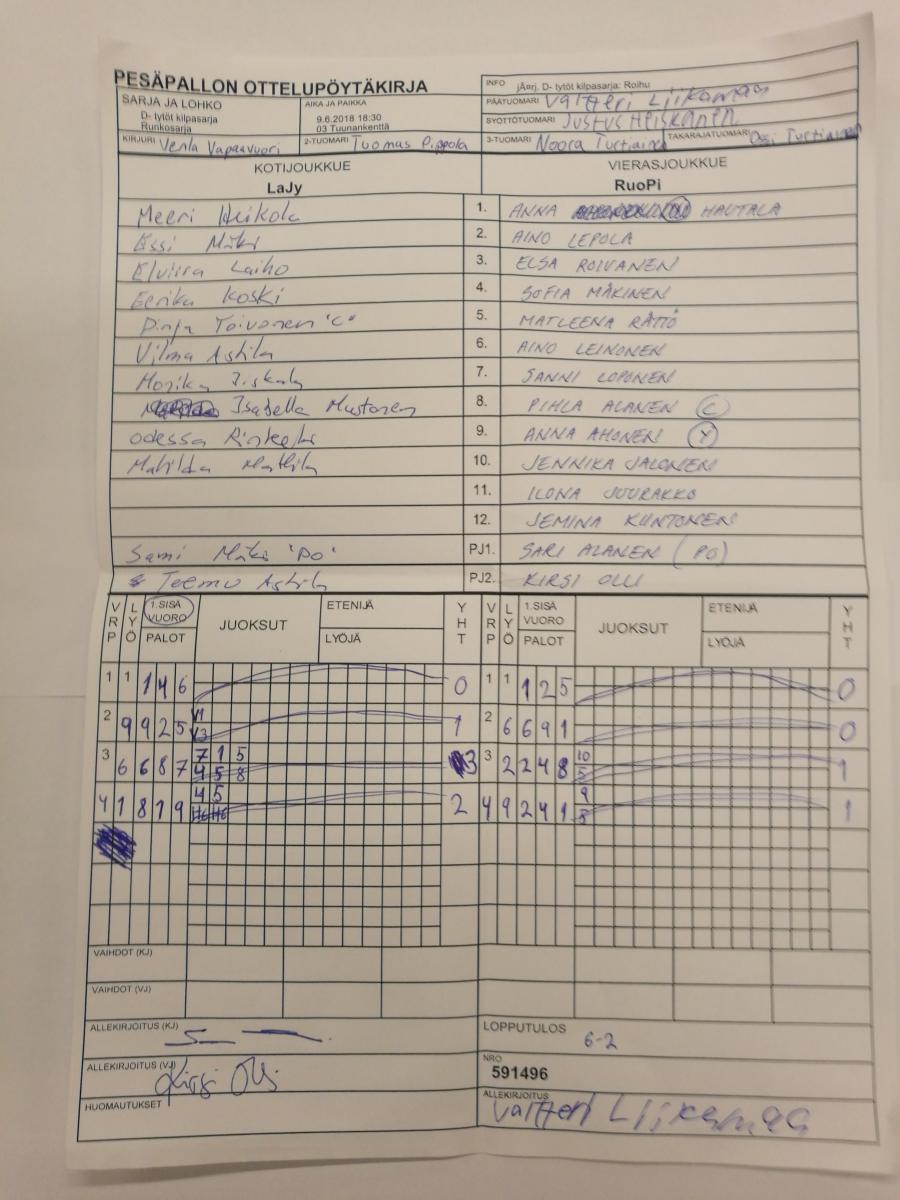 PESÄPALLON OTTELUPÖYTÄKIRJA
INFO jÄrj. D- tytöt kilpasarja: Roihu
SARJA JA LOHKO
D- tytöt kilpasarja
Runkosarja
AIKA JA PAIKKA
9.6.2018 18:30
03 Tuunankenttä
PÄÄTUOMARI Valtteri Liikamaa
SYÖTTÖTUOMARI Justus Heiskanen
KIRJURI Venla Vapaavuori
2-TUOMARI Tuomas Pippola
3-TUOMARI Noora Turtiainen
TAKARAJATUOMARI Ossi Turtiainen
KOTIJOUKKUE
LaJy
VIERASJOUKKUE
RuoPi
Meeri 1. ANNA HAUTALA
Essi Mäki 2. AINO LEPOLA
Elviira Laiho 3. ELSA ROIVANEN
Eerika Koski 4. SOFIA MÄKINEN
Pinja Toivonen "C" 5. MATLEENA RÄTTÖ
Vilma Astila 6. AINO LEINONEN
7. SANNI LOPONEN
Isabella Mustonen 8. PIHLA ALANEN C
Odessa 9. ANNA AHONEN Y
Matilda 10. JENNIKA JALONEN
11. ILONA JUURAKKO
12. JEMINA KUNTONEN
Sami Mäki "PO" PJ1. SARI ALANEN (PO)
Teemu Astila PJ2. KIRSI OLLI
VRP LYÖ 1.SISÄ VUORO PALOT JUOKSUT ETENIJÄ LYÖJÄ YHT VRP LYÖ 1.SISÄ VUORO PALOT JUOKSUT ETENIJÄ LYÖJÄ YHT
1 1 1 4 6 0 1 1 1 2 5 0
2 9 9 2 5 V1 V3 1 2 6 6 9 1 0
3 6 6 8 7 7 1 5 3 3 2 2 4 8 10 1
4 5 8 5
4 1 8 7 9 4 5 2 4 9 2 4 1 9 1
8
VAIHDOT (KJ)
VAIHDOT (VJ)
ALLEKIRJOITUS (KJ)
LOPPUTULOS
6-2
ALLEKIRJOITUS (VJ) Kirsi Olli
NRO
591496
HUOMAUTUKSET
ALLEKIRJOITUS
Valtteri Liikamaa